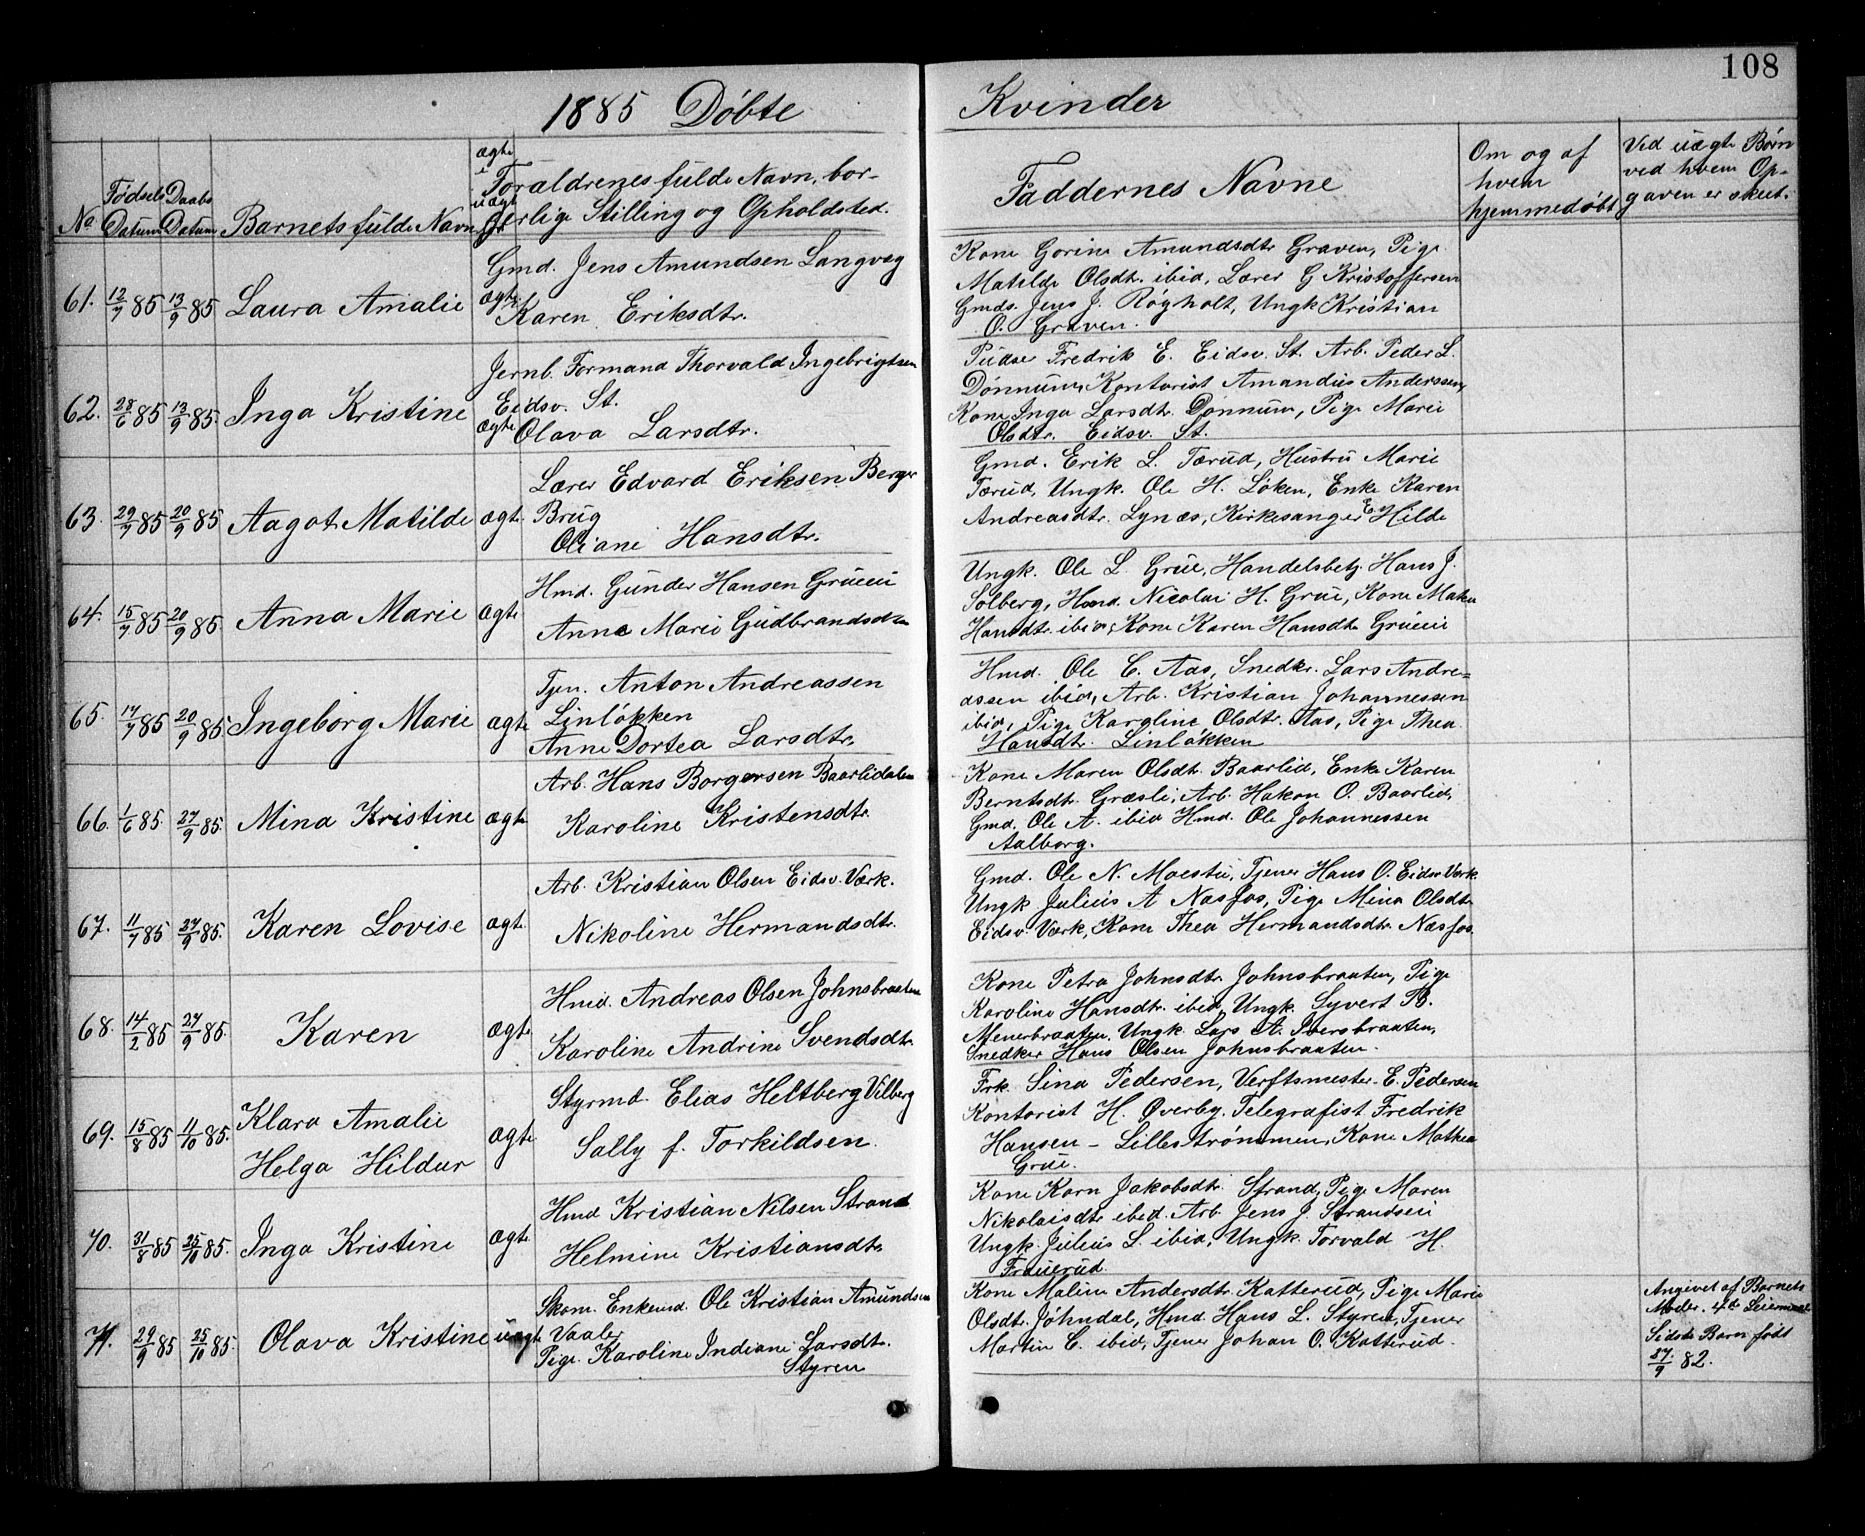 108
1885 Döbte Kvinder
No
Födsels Datum
Daabs Datum
Barnets fulde Navn
ægte
uægte
Forældrenes fulde Navn, bor-
gerlige Stilling og Opholdsted.
Faddernes Navne
Om og af
hvem
hjemmedøbt
Ved uægte Børn
ved hvem Op-
gaven er skeet.
61. 12/7 85 13/9 85 Laura Amalie ægte
Gmd. Jens Amundsen Langvæg
Karen Eriksdtr.
Kone Gorine Amundsdtr Graven, Pige
Matilde Olsdtr. ibid, Lærer G Kristoffersen
Gmds. Jens J. Røyholt, Ungk Kristian
O. Graven.
62. 28/6 85 13/9 85. Inga Kristine ægte
Jernb. Formand Thorvald Ingebrigtsen
Eidsv. St.
Olava Larsdtr.
Pudser Fredrik E. Eidsv. St. Arb. Peder L.
Dönnum, Kontorist Amandus Anderssen,
Kone Inga Larsdtr. Dönnum, Pige Marie
Olsdtr. Eidsv. St.
63. 29/7 85 20/9 85 Aagot Matilde ægte
Lærer Edvard Eriksen Berger
Brug
Oliane Hansdtr.
Gmd. Erik L. Tærud, Hustru Marie
Tærud, Ungk. Ole H. Löken, Enke Karen
Andreasdtr. Lynæs, Kirkesanger E Hilde
64. 15/7 85 20/9 85 Anna Marie ægte
Hmd. Gunder Hansen Grueei
Anne Marie Gudbrandsdtr
Ungk. Ole L. Grue, Handelsbetj. Hans J.
Solberg, Hmd. Nicolai H. Grue, Kone Maka
Hansdtr. ibid, Kone Karen Hansdtr Grueei
65. 17/7 85 20/9 85 Ingeborg Marie ægte
Tjen. Anton Andreassen
Linlökken
Anne Dortea Larsdtr.
Hmd. Ole C. Aas, Snedkr. Lars Andre-
assen ibid, Arb. Kristian Johannessen
ibid, Pige Karoline Olsdtr. Aas, Pige Thea
Hansdtr. Linlökken
66. 1/6 85. 27/9 85. Mina Kristine ægte
Arb. Hans Borgersen Baarlidalen
Karoline Kristensdtr.
Kone Maren Olsdt. Baarlid, Enke Karen
Berntsdtr. Græsli, Arb. Hakon O. Baarlid,
Gmd. Ole A. ibid Hmd. Ole Johannessen
Aalborg.
67. 11/7 85 27/9 85. Karen Lovise ægte
Arb. Kristian Olsen Eidsv. Værk.
Nikoline Hermandsdtr.
Gmd. Ole N. Moestu, Tjener Hans O. Eidsv Værk
Ungk Julius A Næsfos, Pige Mina Olsdtr
Eidsv. Værk, Kone Thea Hermandsdtr. Næsfos.
68. 14/2 85 27/9 85. Karen ægte
Hmd. Andreas Olsen Johnsbraaten
Karoline Andrine Svendsdtr.
Kone Petra Johnsdtr. Johnsbraaten, Pige
Karoline Hansdtr. ibid, Ungk. Syvert B.
Menerbraaten, Ungk. Lars A. Ibersbraaten,
Snedker Hans Olsen Johnsbraaten.
69. 15/8 85 11/10 85. Klara Amalie
Helga Hildur ægte
Styrmd. Elias Heltberg Vilberg
Sally f. Torkildsen
Frk. Sina Pedersen, Verftsmester E. Pedersen
Kontorist H. Overby. Telegrafist Fredrik
Hansen - Lillestrømmen, Kone Mathea
Grue.
70. 31/8 85 25/10 85. Inga Kristine ægte
Hmd Kristian Nilsen Strand
Helmine Kristiansdtr
Kone Karn Jakobsdtr. Strand, Pige Maren
Nikolaisdtr ibid. Arb Jens J. Strandseii
Ungk. Julius L. ibid, Ungk. Torvald H.
Fruerud.
71. 29/9 85 25/10 85. Olava Kristine uægte
Skom. Enkemd. Ole Kristian Amundsen
Vaaler
Pige Karoline Indiane Larsdtr.
Styren
Kone Maline Andersdtr. Katterud, Pige Marie
Olsdtr. Jöhndal, Hmd. Hans L. Styren, Tjener
Martin C. ibid, Tjener Johan O. Katterud.
Angivet af Barnets
Moder. 4de Leiermaal
Sidste Barn født
27/9 82.